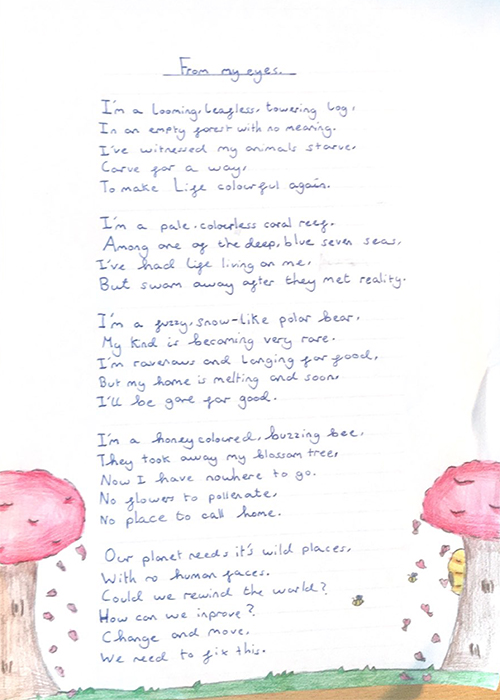 From my eyes.
I'm a looming, leafless, towering log,
In an empty forest with no meaning.
I've witnessed my animals starve,
Carve for a way,
To make Life colourful again.
I'm a pale, colourless coral reef.
Among one of the deep, blue seven seas,
I've had life living on me,
But swam away after they met reality.
I'm a fuzzy, snow-like polar bear,
My kind is becoming very rare.
I'm ravenous and longing for food,
But my home is melting and soon,
I'll be gone for good.
I'm a honey coloured, buzzing bee,
They took away my blossom tree,
Now I have nowhere to go.
No flowers to pollenate,
No place to call home.
Our planet needs it's wild places,
With no human faces.
Could we rewind the world?
How can we inprove?
Change and move,
We need to fix this.